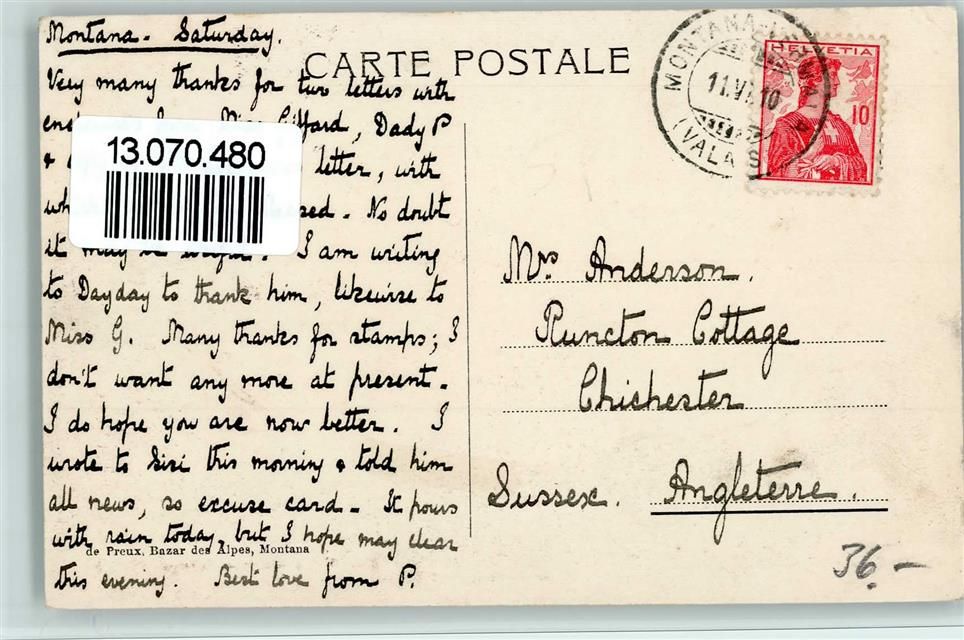 Montana - Saturday.
CARTE POSTALE
Very many thanks for two letters with
Gifford, Dady P
& letter, with
No doubt
it may be I am writing
to Dayday to thank him, likewise to
Miss G. Many thanks for stamps; I
don't want any more at present -
I do hope you are now better. I
wrote to Sisi this morning & told him
all news, so excuse card - It pours
with rain today, but I hope may clear
de Preux, Bazar des Alpes, Montana
this evening. Best love from P.
13.070.480
MONTANA-VERMALA
11.VI.10
(VALAIS)
HELVETIA
10
Mrs Anderson,
Runcton Cottage
Chichester
Sussex. Angleterre.
36.-